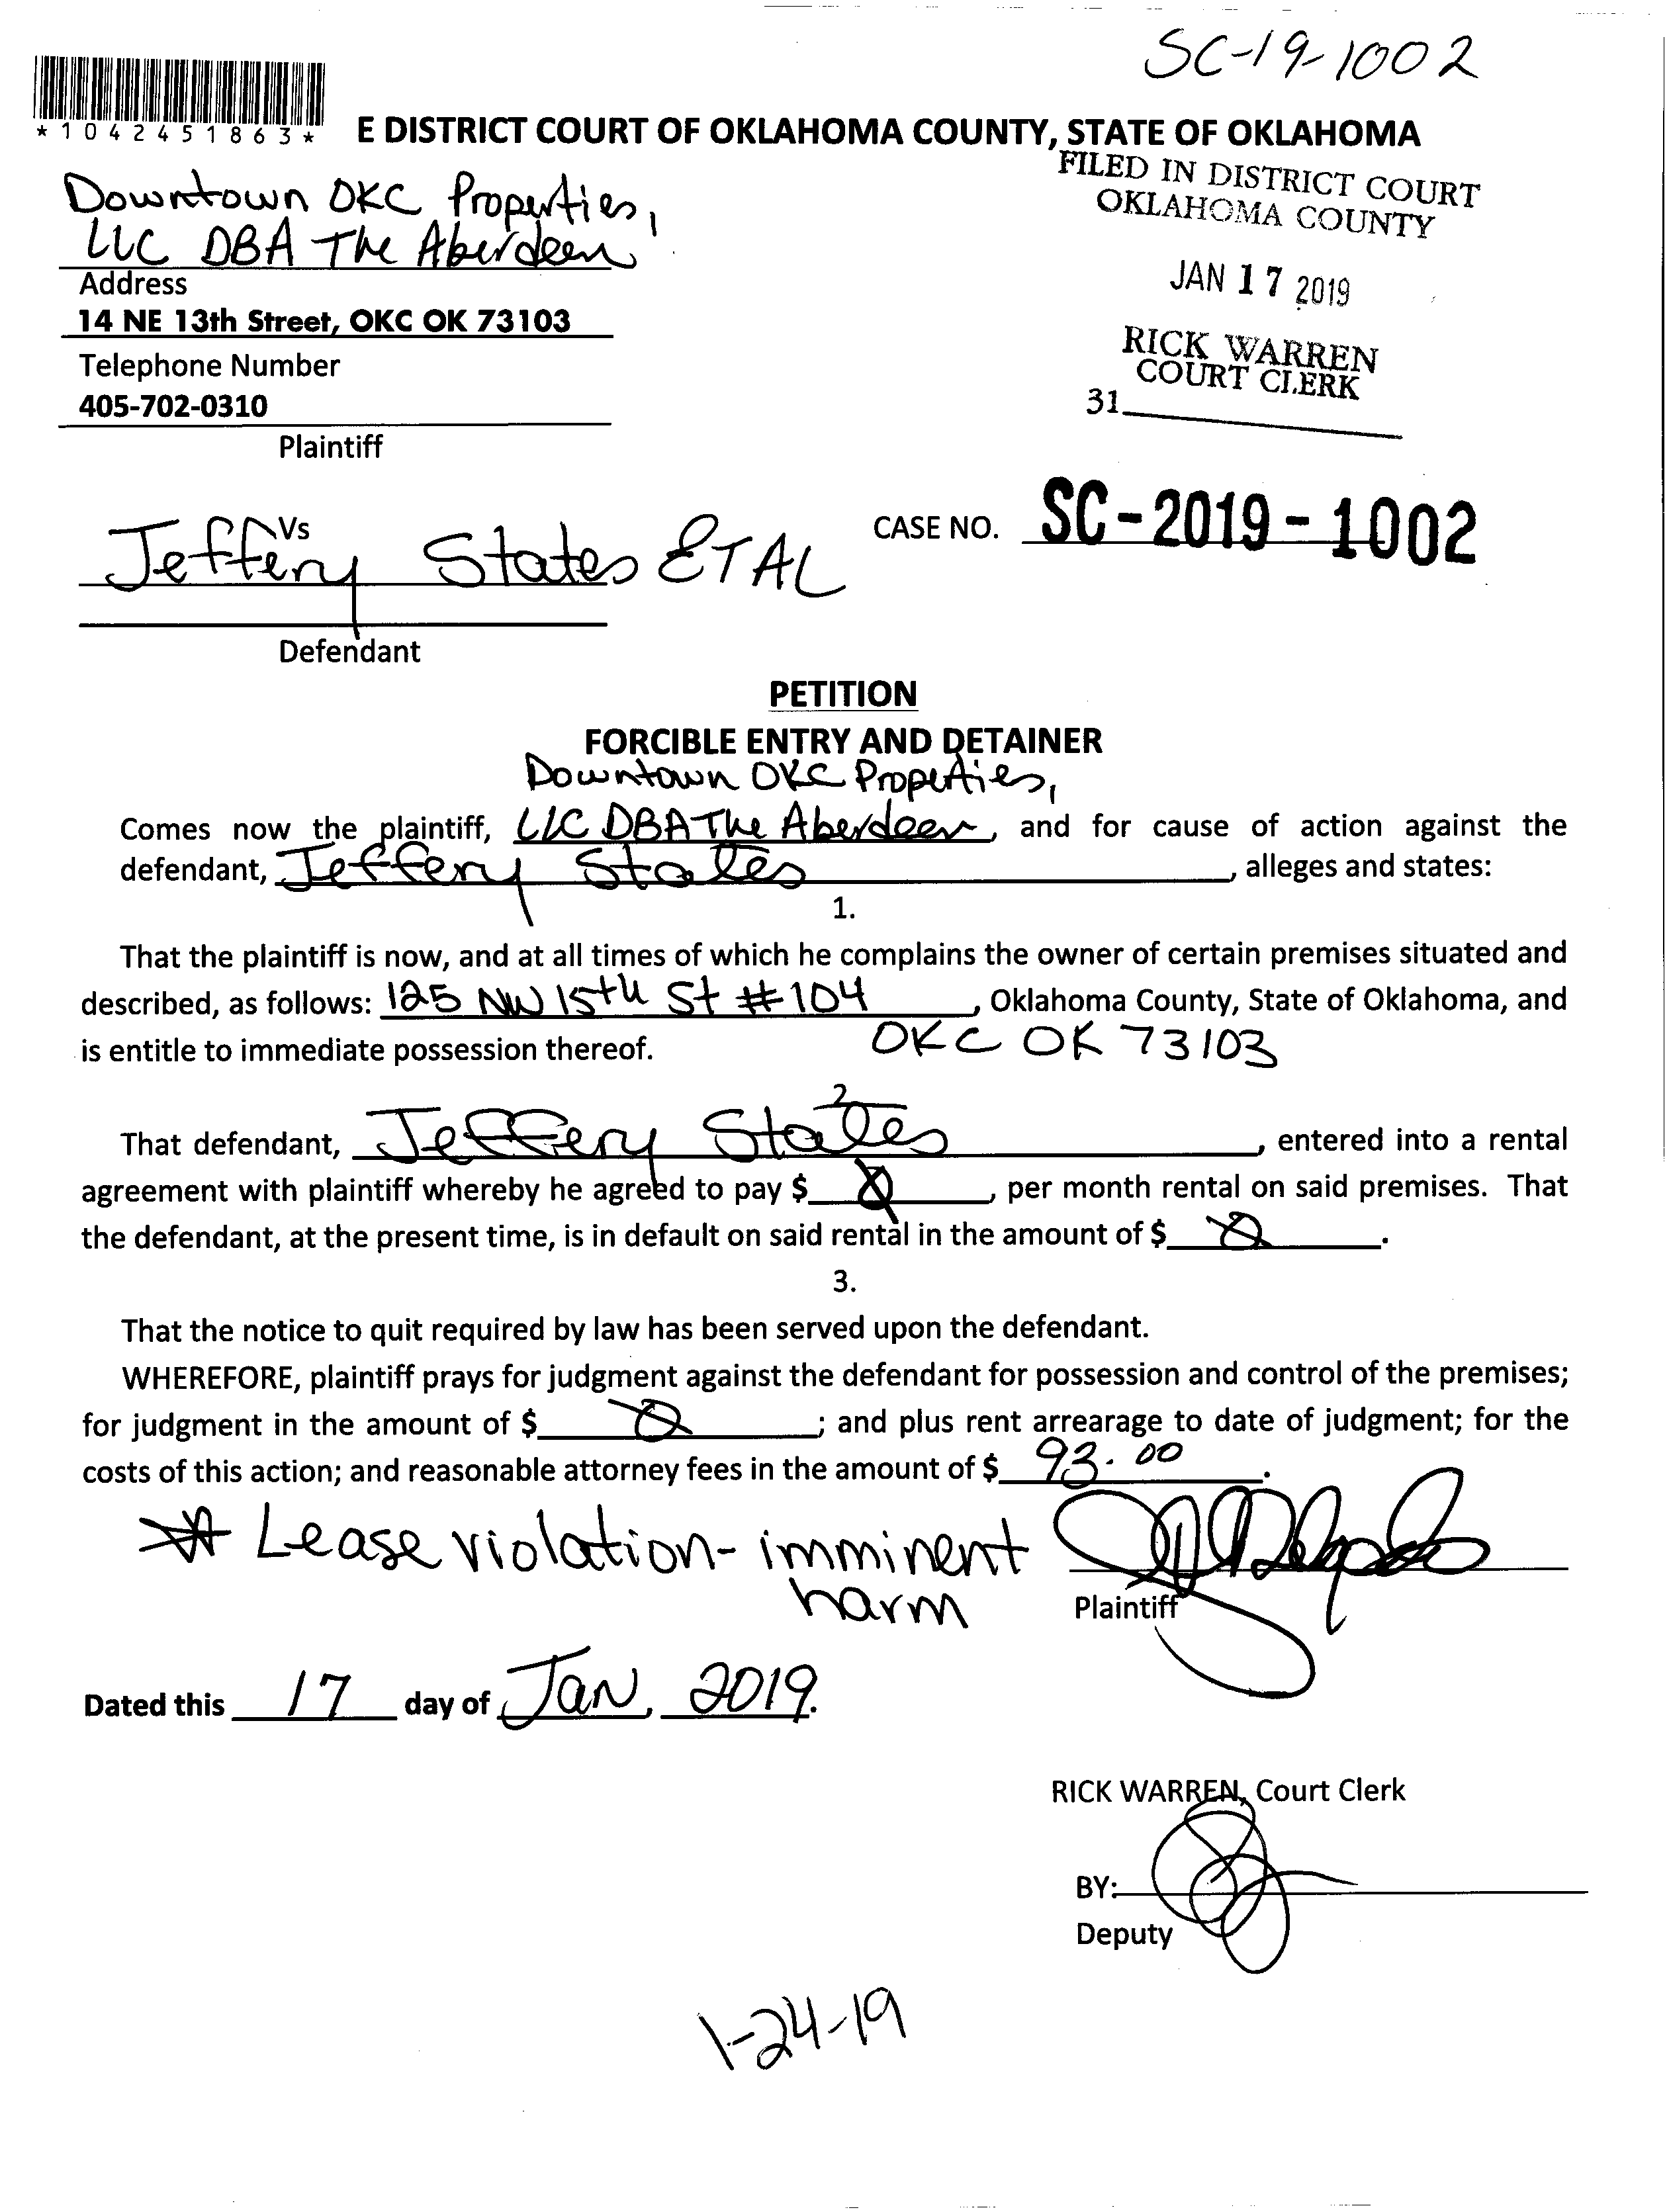 SC-19-1002
*1042451863*
E DISTRICT COURT OF OKLAHOMA COUNTY, STATE OF OKLAHOMA
FILED IN DISTRICT COURT
OKLAHOMA COUNTY
JAN 17 2019
RICK WARREN
COURT CLERK
31
Downtown OKC Properties,
LLC DBA The Aberdeen
Address
14 NE 13th Street, OKC OK 73103
Telephone Number
405-702-0310
Plaintiff
Vs
Jeffery States ETAL
CASE NO. SC-2019-1002
Defendant
PETITION
FORCIBLE ENTRY AND DETAINER
Downtown OKC Properties,
Comes now the plaintiff, LLC DBA The Aberdeen, and for cause of action against the
defendant, Jeffery States, alleges and states:
1.
That the plaintiff is now, and at all times of which he complains the owner of certain premises situated and
described, as follows: 125 NW 15th St #104, Oklahoma County, State of Oklahoma, and
is entitle to immediate possession thereof. OKC OK 73103
2.
That defendant, Jeffery States, entered into a rental
agreement with plaintiff whereby he agreed to pay $ 0, per month rental on said premises. That
the defendant, at the present time, is in default on said rental in the amount of $ 0.
3.
That the notice to quit required by law has been served upon the defendant.
WHEREFORE, plaintiff prays for judgment against the defendant for possession and control of the premises;
for judgment in the amount of $ 0; and plus rent arrearage to date of judgment; for the
costs of this action; and reasonable attorney fees in the amount of $ 93.00.
* Lease violation- imminent
harm
Plaintiff
Dated this 17 day of Jan, 2019.
RICK WARREN, Court Clerk
BY:
Deputy
1-24-19